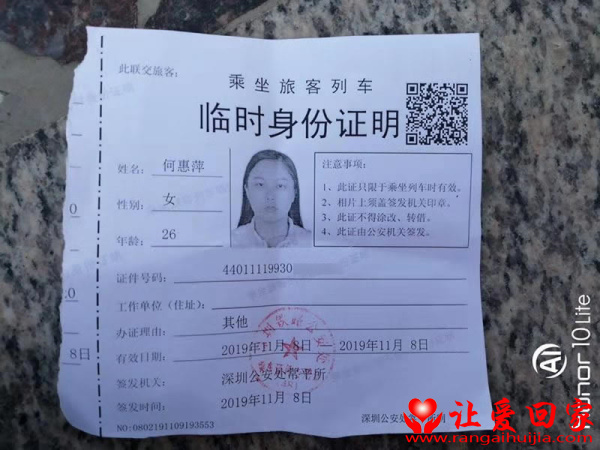 此联交旅客:
乘坐旅客列车
临时身份证明
姓名: 何惠萍
性别: 女
年龄: 26
注意事项:
1、此证只限于乘坐列车时有效。
2、相片上须盖签发机关印章。
3、此证不得涂改、转借。
4、此证由公安机关签发。
证件号码: 44011119930
工作单位(住址):
办证理由: 其他
有效日期: 2019年11月 8日 2019年11月 8日
8日
签发机关: 深圳公安处常平所
签发时间: 2019年11月 8日
NO:0802191109193553
深圳公安处
AI
honor 10 Lite
让爱回家
www.rangaihuijia.com